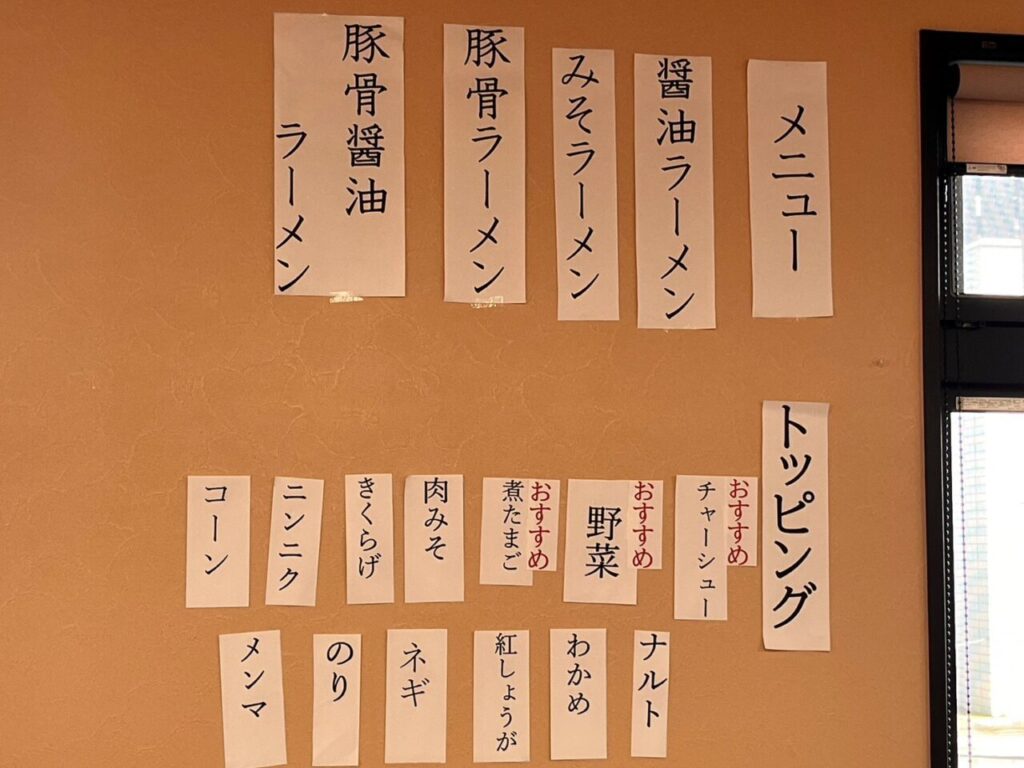 メニュー
醤油ラーメン
みそラーメン
豚骨ラーメン
豚骨醤油
ラーメン
トッピング
おすすめ
チャーシュー
おすすめ
野菜
おすすめ
煮たまご
肉みそ
きくらげ
ニンニク
コーン
ナルト
わかめ
紅しょうが
ネギ
のり
メンマ